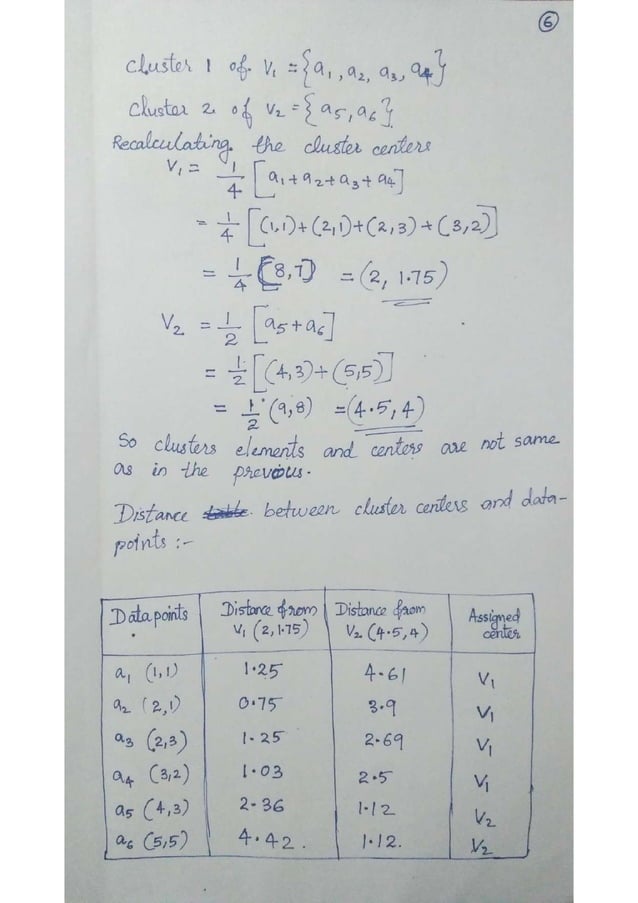 6
Cluster 1 of V₁ = {a₁, a₂, a₃, a₄}
Cluster 2 of V₂ = {a₅, a₆}
Recalculating the cluster centers
V₁ = 1/4 [a₁ + a₂ + a₃ + a₄]
= 1/4 [(1,1) + (2,1) + (2,3) + (3,2)]
= 1/4 (8,7) = (2, 1.75)
V₂ = 1/2 [a₅ + a₆]
= 1/2 [(4,3) + (5,5)]
= 1/2 (9,8) = (4.5, 4)
So clusters elements and centers are not same
as in the previous.
Distance table between cluster centers and data-
points :-
Data points | Distance from V₁ (2, 1.75) | Distance from V₂ (4.5, 4) | Assigned center
a₁ (1,1) 1.25 4.61 V₁
a₂ (2,1) 0.75 3.9 V₁
a₃ (2,3) 1.25 2.69 V₁
a₄ (3,2) 1.03 2.5 V₁
a₅ (4,3) 2.36 1.12 V₂
a₆ (5,5) 4.42. 1.12. V₂